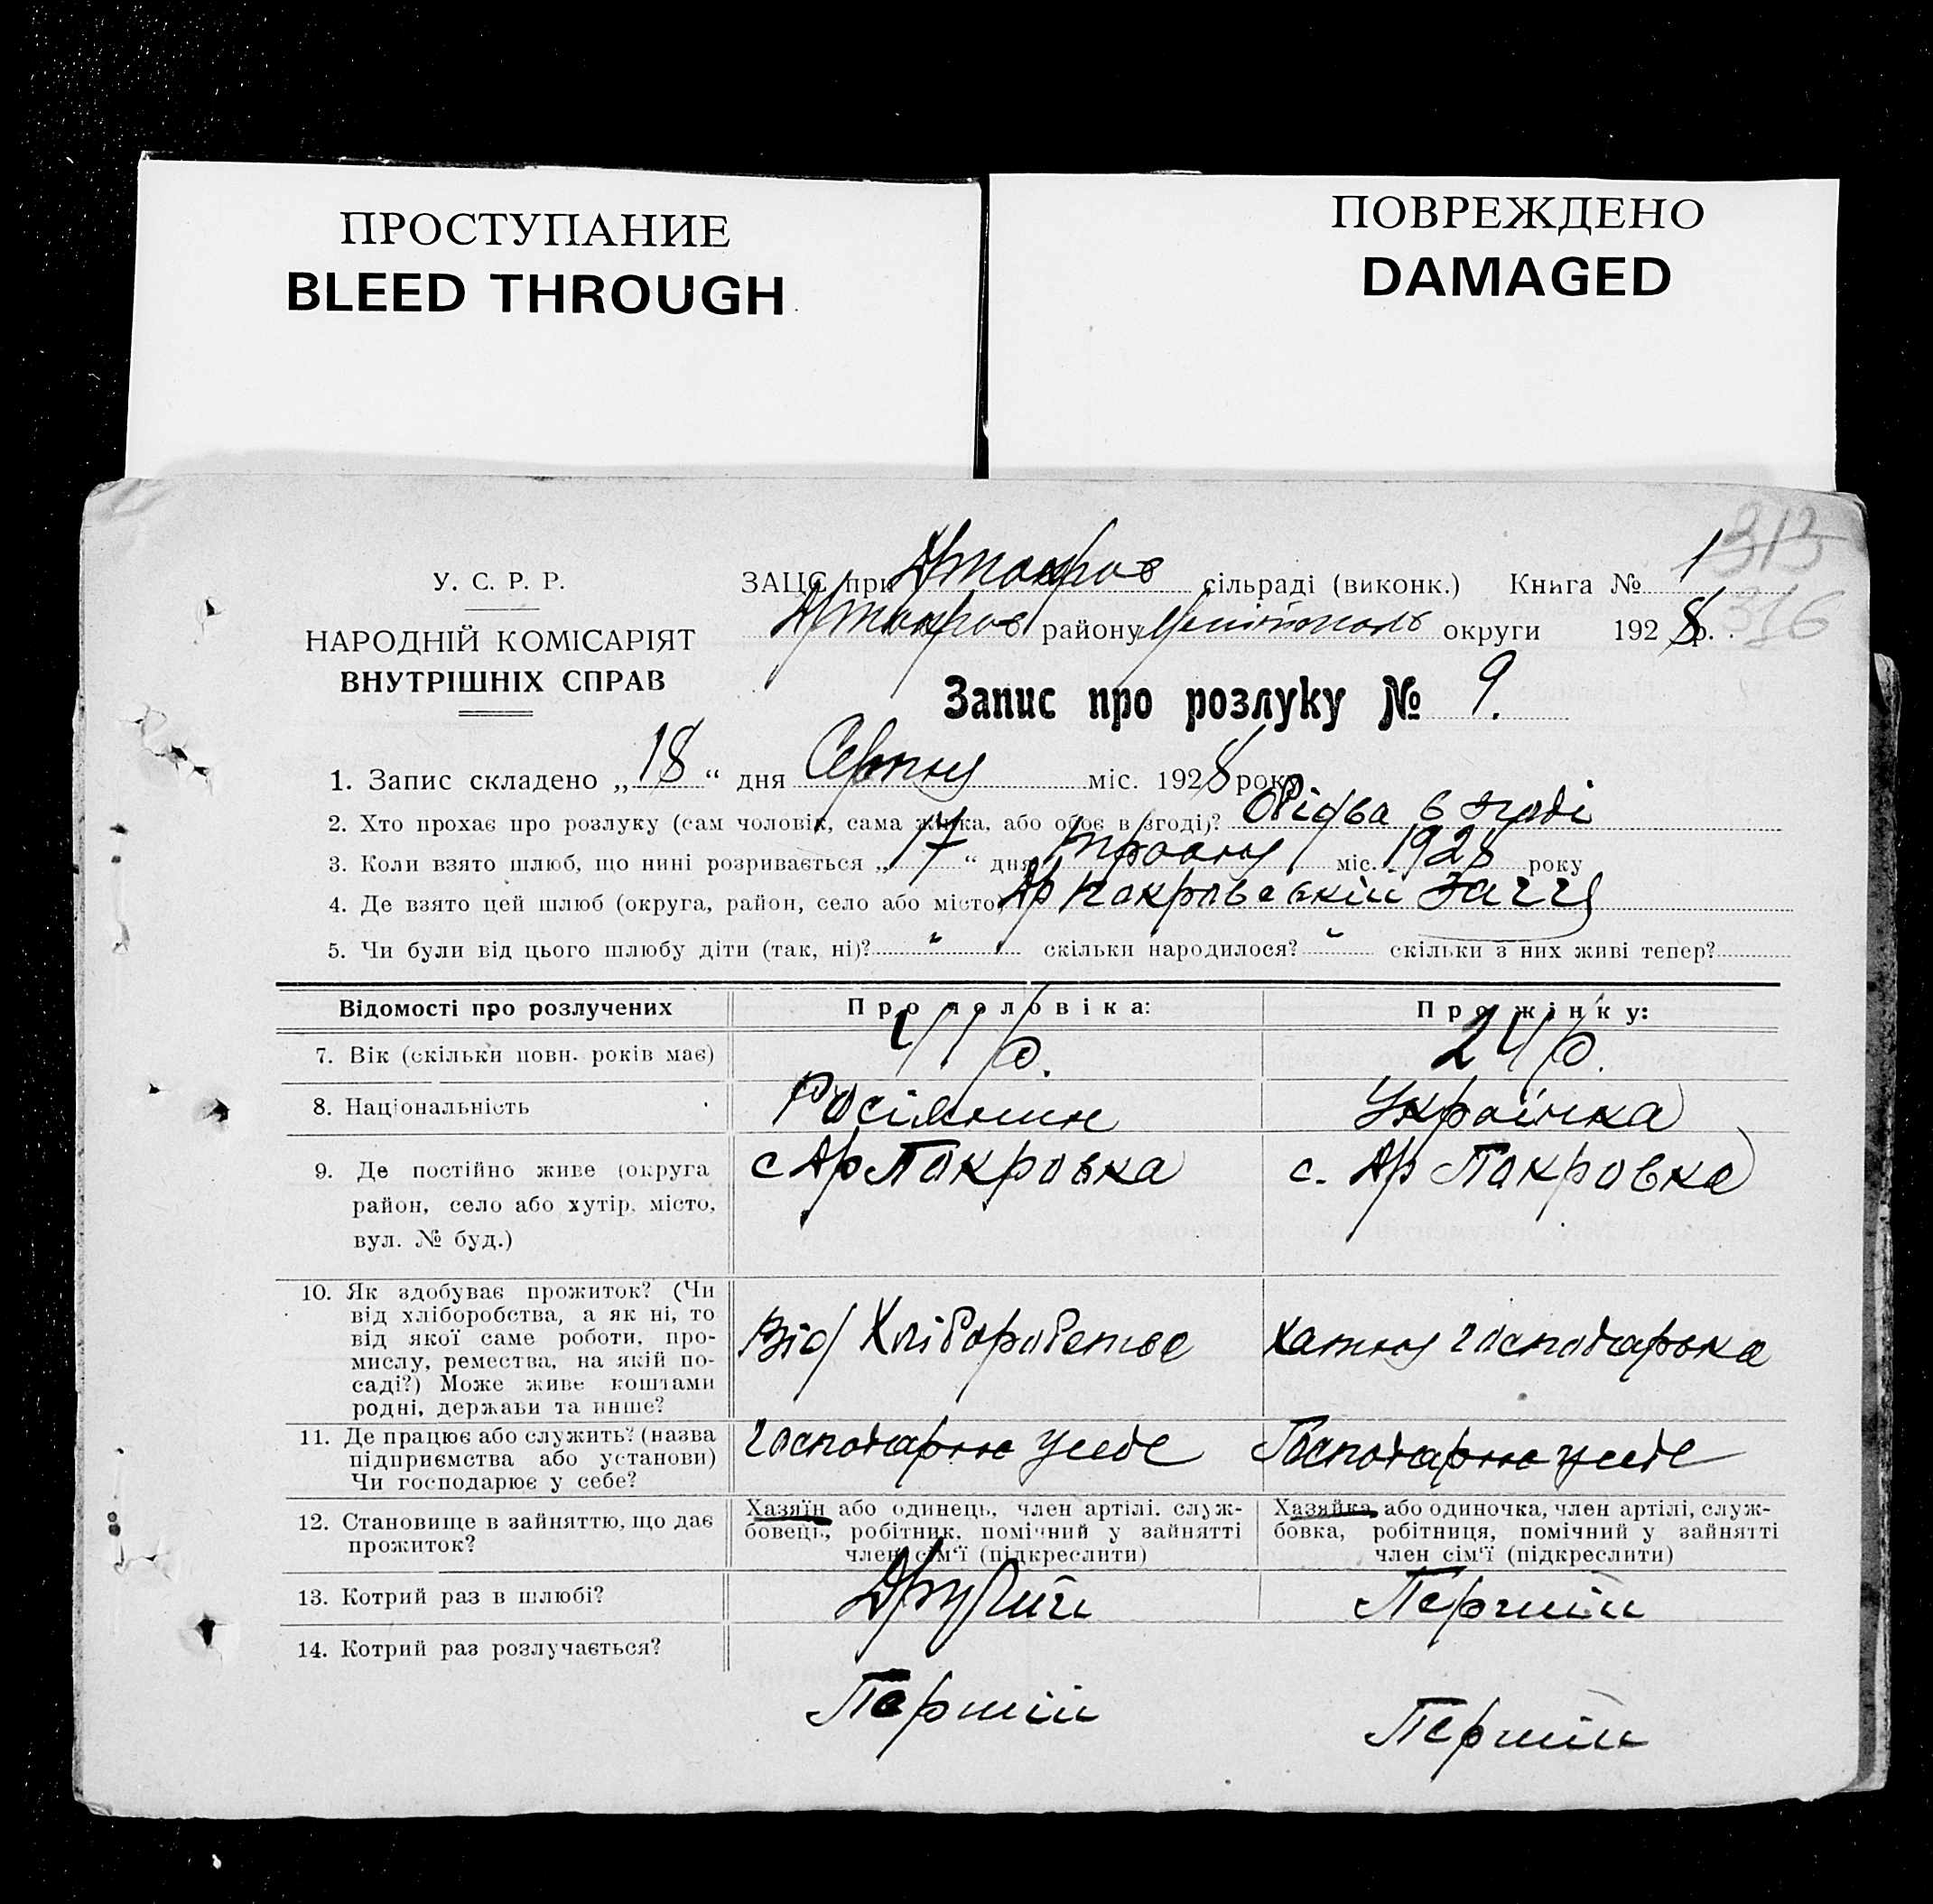 ПРОСТУПАНИЕ
BLEED THROUGH
ПОВРЕЖДЕНО
DAMAGED
313
316
У. С. Р. Р.
НАРОДНІЙ КОМІСАРІЯТ
ВНУТРІШНІХ СПРАВ
ЗАЦС при сільраді (виконк.) Книга № 1
району округи 1928 р.
Запис про розлуку № 9.
1. Запис складено „18“ дня Серпня міс. 1928 року
2. Хто прохає про розлуку (сам чоловік, сама жінка, або обоє в згоді)? Обідва в згоді
3. Коли взято шлюб, що нині розривається „17“ дня міс. 1928 року
4. Де взято цей шлюб (округа, район, село або місто) Ар Покровській Загсі
5. Чи були від цього шлюбу діти (так, ні)? " скільки народилося? " скільки з них живі тепер?
Відомості про розлучених Про чоловіка: Про жінку:
7. Вік (скільки повн. років має) 41 р. 24 р.
8. Національність Росіянин Українка
9. Де постійно живе (округа с Ар Покровка с. Ар Покровка
район, село або хутір, місто,
вул. № буд.)
10. Як здобуває прожиток? (Чи
від хліборобства, а як ні, то
від якої саме роботи, про-
мислу, ремества, на якій по-
саді?) Може живе коштами
родні, держави та инше?
Від Хліборобства Хатня господарка
11. Де працює або служить? (назва
підприємства або установи)
Чи господарює у себе?
господарює у себе Господарює у себе
12. Становище в зайняттю, що дає
прожиток?
Хазяїн або одинець, член артілі. служ-
бовець, робітник, помічний у зайнятті
член сім'ї (підкреслити)
Хазяйка або одиночка, член артілі, служ-
бовка, робітниця, помічний у зайнятті
член сім'ї (підкреслити)
13. Котрий раз в шлюбі? Другий Перший
14. Котрий раз розлучається?
Перший Перший